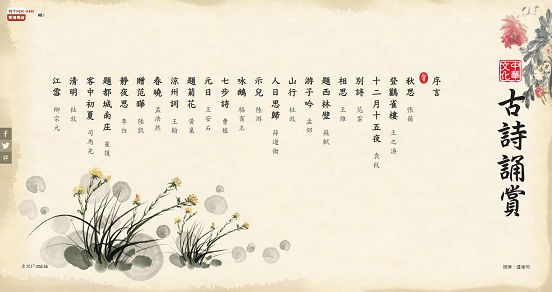 RTHK.HK
香港電台
中華文化
古詩誦賞
序言
秋思 張籍
登鸛雀樓 王之渙
十二月十五夜 袁枚
別詩 范雲
相思 王維
題西林壁 蘇軾
游子吟 孟郊
山行 杜牧
人日思歸 薛道衡
示兒 陸游
咏鵝 駱賓王
七步詩 曹植
元日 王安石
題菊花 黃巢
涼州詞 王翰
春曉 孟浩然
贈范曄 陸凱
靜夜思 李白
題都城南莊 崔護
客中初夏 司馬光
清明 杜牧
江雪 柳宗元
© 2017 RTHK.HK